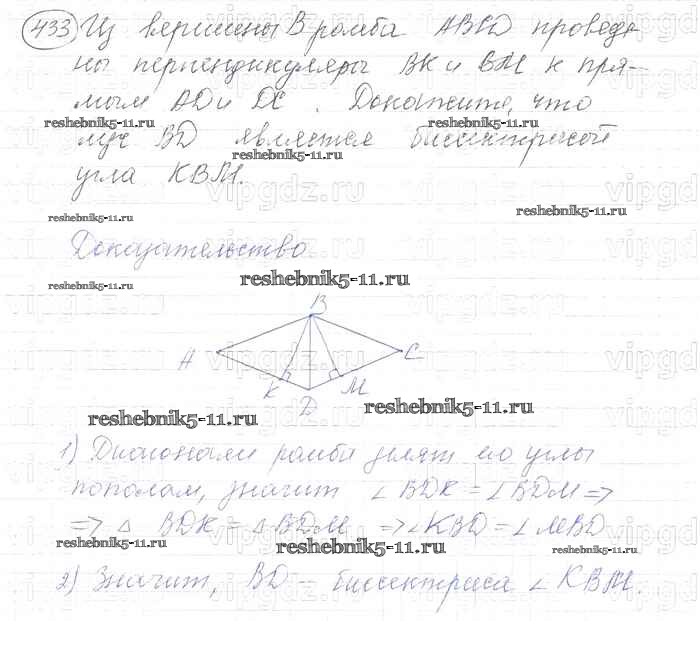 433 Из вершины B ромба ABCD проведе-
ны перпендикуляры BK и BM к пря-
мым AD и DC. Докажите, что
reshebnik5-11.ru reshebnik5-11.ru
луч BD является биссектрисой
reshebnik5-11.ru
угла KBM.
vipgdz.ru
reshebnik5-11.ru reshebnik5-11.ru
Доказательство
reshebnik5-11.ru reshebnik5-11.ru
B
A C
K M
D
reshebnik5-11.ru reshebnik5-11.ru
1) Диагонали ромба делят его углы
пополам, значит ∠BDK = ∠BDM =>
=> △ BDK = △ BDM => ∠KBD = ∠MBD
reshebnik5-11.ru reshebnik5-11.ru reshebnik5-11.ru
2) Значит, BD – биссектриса ∠KBM.